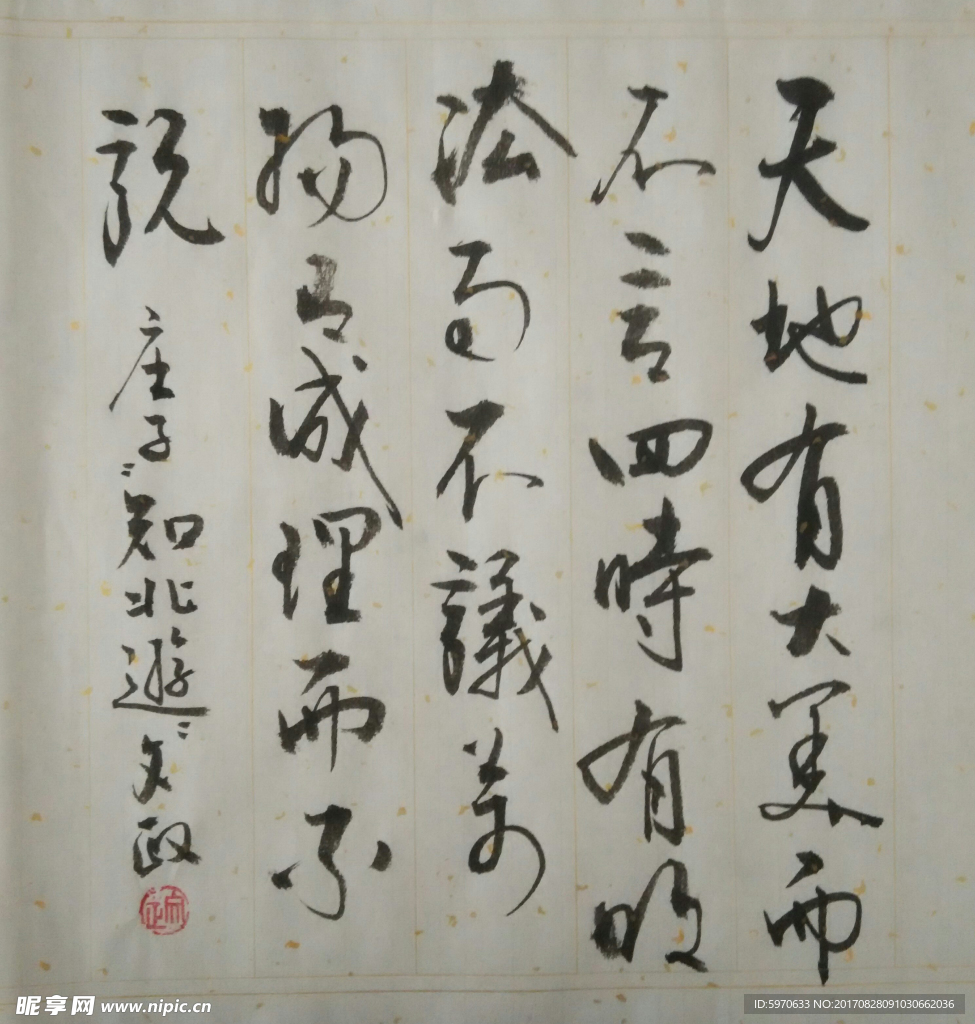 天地有大美而
不言四時有明
法而不議萬
物有成理而不
説 庄子"知北遊"文政
昵享网 www.nipic.cn
ID:5970633 NO:20170828091030662036